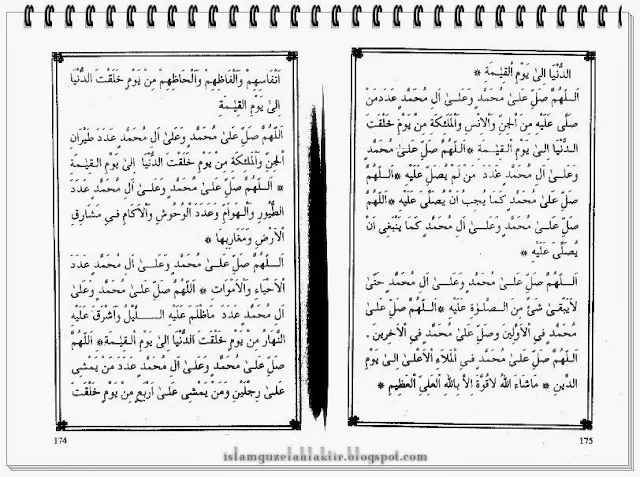 اَنْفَاسِهِمْ وَاَلْفَاظِهِمْ وَاَلْحَاظِهِمْ مِنْ يَوْمِ خَلَقْتَ الدُّنْيَا
اِلىٰ يَوْمِ الْقِيٰمَةِ
اَللّٰهُمَّ صَلِّ عَلىٰ مُحَمَّدٍ وَعَلىٰ اٰلِ مُحَمَّدٍ عَدَدَ طَيَرَانِ
الْجِنِّ وَالْمَلٰئِكَةِ مِنْ يَوْمِ خَلَقْتَ الدُّنْيَا اِلىٰ يَوْمِ الْقِيٰمَةِ
* اَللّٰهُمَّ صَلِّ عَلىٰ مُحَمَّدٍ وَعَلىٰ اٰلِ مُحَمَّدٍ عَدَدَ
الطُّيُورِ وَالْهَوَامِّ وَعَدَدَ الْوُحُوشِ وَالْاٰكَامِ فِي مَشَارِقِ
الْاَرْضِ وَمَغَارِبِهَا *
اَللّٰهُمَّ صَلِّ عَلىٰ مُحَمَّدٍ وَعَلىٰ اٰلِ مُحَمَّدٍ عَدَدَ
الْاَحْيَاءِ وَالْاَمْوَاتِ * اَللّٰهُمَّ صَلِّ عَلىٰ مُحَمَّدٍ وَعَلىٰ
اٰلِ مُحَمَّدٍ عَدَدَ مَااَظْلَمَ عَلَيْهِ الَّيْلُ وَاَشْرَقَ عَلَيْهِ
النَّهَارُ مِنْ يَوْمِ خَلَقْتَ الدُّنْيَا اِلىٰ يَوْمِ الْقِيٰمَةِ* اَللّٰهُمَّ
صَلِّ عَلىٰ مُحَمَّدٍ وَعَلىٰ اٰلِ مُحَمَّدٍ عَدَدَ مَنْ يَمْشِى
عَلىٰ رِجْلَيْنِ وَمَنْ يَمْشِى عَلىٰ اَرْبَعٍ مِنْ يَوْمِ خَلَقْتَ
174
الدُّنْيَا اِلىٰ يَوْمِ الْقِيٰمَةِ *
اَللّٰهُمَّ صَلِّ عَلىٰ مُحَمَّدٍ وَعَلىٰ اٰلِ مُحَمَّدٍ عَدَدَمَنْ
صَلّٰى عَلَيْهِ مِنَ الْجِنِّ وَالْاِنْسِ وَالْمَلٰئِكَةِ مِنْ يَوْمِ خَلَقْتَ
الدُّنْيَا اِلىٰ يَوْمِ الْقِيٰمَةِ *اَللّٰهُمَّ صَلِّ عَلىٰ مُحَمَّدٍ
وَعَلىٰ اٰلِ مُحَمَّدٍ عَدَدَ مَنْ لَمْ يُصَلِّ عَلَيْهِ *اَللّٰهُمَّ
صَلِّ عَلىٰ مُحَمَّدٍ كَمَا يُجِبُ اَنْ يُصَلّٰى عَلَيْهِ *اَللّٰهُمَّ
صَلِّ عَلىٰ مُحَمَّدٍ وَعَلىٰ اٰلِ مُحَمَّدٍ كَمَا يَنْبَغِى اَنْ
يُصَلّٰى عَلَيْهِ *
اَللّٰهُمَّ صَلِّ عَلىٰ مُحَمَّدٍ وَعَلىٰ اٰلِ مُحَمَّدٍ حَتّٰى
لَايَبْقىٰ شَئٌ مِنَ الصَّلٰوةِ عَلَيْهِ *اَللّٰهُمَّ صَلِّ عَلىٰ
مُحَمَّدٍ فِي الْاَوَّلِينَ وَصَلِّ عَلىٰ مُحَمَّدٍ فِي الْاٰخِرِينَ.
اَللّٰهُمَّ صَلِّ عَلىٰ مُحَمَّدٍ فِي الْمَلَاءِ الْاَعْلىٰ اِلىٰ يَوْمِ
الدِّينِ * مَاشَاءَ اللّٰهُ لَاقُوَّةَ اِلَّا بِاللّٰهِ الْعَلِيِّ الْعَظِيمِ *
175
islamguzelahlaktir.blogspot.com